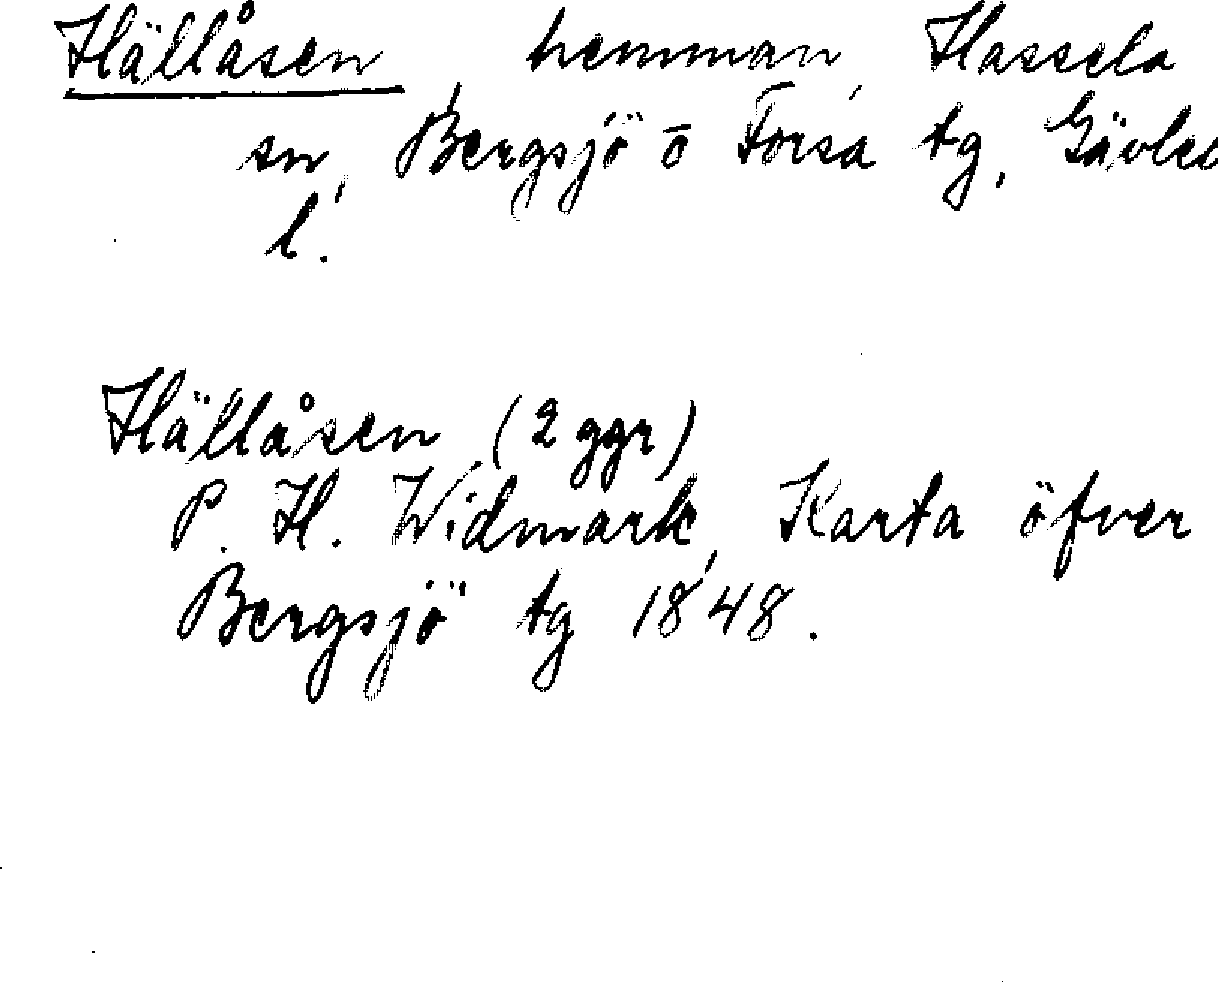 Hällåsen, hemman, Hassela
sn, Bergsjö o Forsa tg, Gävleb
l.
Hällåsen (2 ggr)
P. H. Widmark, Karta öfver
Bergsjö tg 1848.